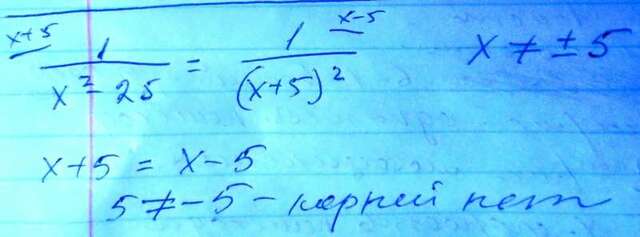 x+5 1 / x² - 25 = 1 x-5 / (x+5)² x ≠ ± 5
x+5 = x-5
5 ≠ -5 - корней нет